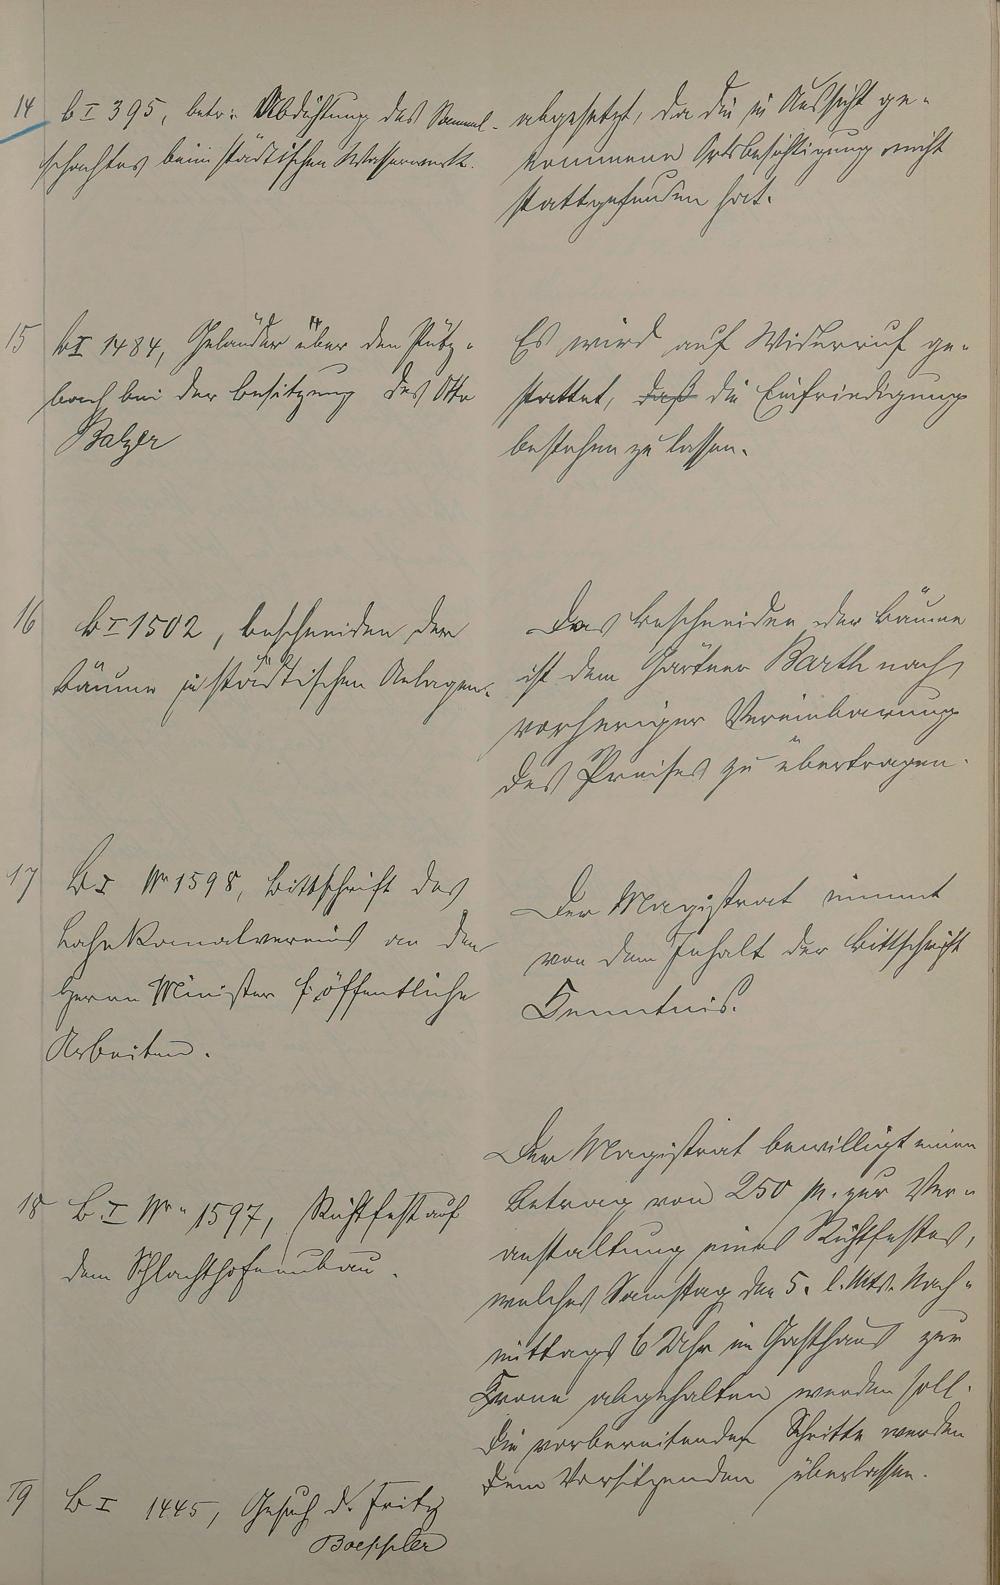 14 b I 395, betr: Abdichtung des Sammel-
schachtes beim städtischen Wasserwerk.
abgesetzt, da die in Aussicht ge-
nommene Ortsbesichtigung nicht
stattgefunden hat.
15 b I 1484, Geländer über den Pütz-
bach bei der Besitzung des Otto
Balzer
Es wird auf Widerruf ge-
stattet, daß die Einfriedigung
bestehen zu lassen.
16 b I 1502, Beschneiden der
Bäume in städtischen Anlagen.
Das Beschneiden der Bäume
ist dem Gärtner Barth nach
vorheriger Vereinbarung
des Preises zu übertragen.
17 B I Nr 1598, Bittschrift des
Lahnkanalvereins an den
Herrn Minister f. öffentliche
Arbeiten.
Der Magistrat nimmt
von dem Inhalt der Bittschrift
Kenntnis.
18 B I Nr. 1597, Richtfest auf
dem Schlachthofneubau.
Der Magistrat bewilligt einen
Betrag von 250 M. zur Ver-
anstaltung eines Richtfestes,
welches Samstag den 5. l. Mts. Nach-
mittags 6 Uhr im Gasthaus zur
Krone abgehalten werden soll.
Die vorbereitenden Schritte werden
dem Vorsitzenden überlassen.
19 B I 1445, Gesuch d. Fritz
Boeppler